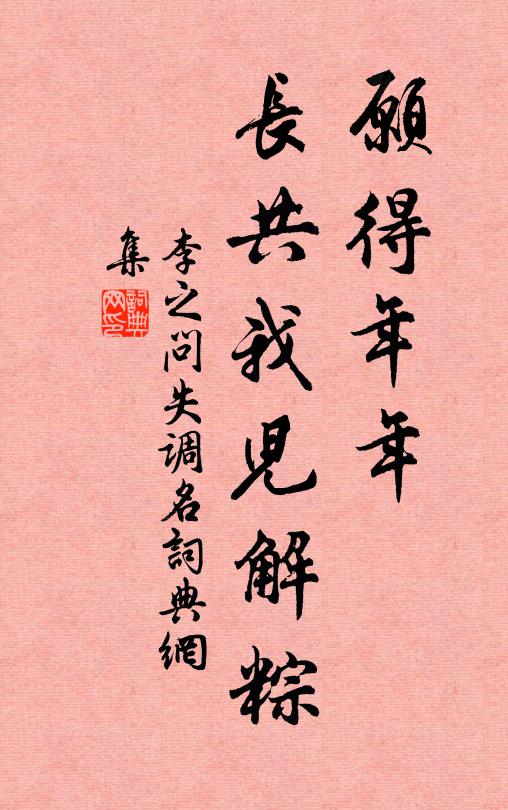 願得年年
長共我兒解粽
李之問失調名詞典網
集
詞典网印